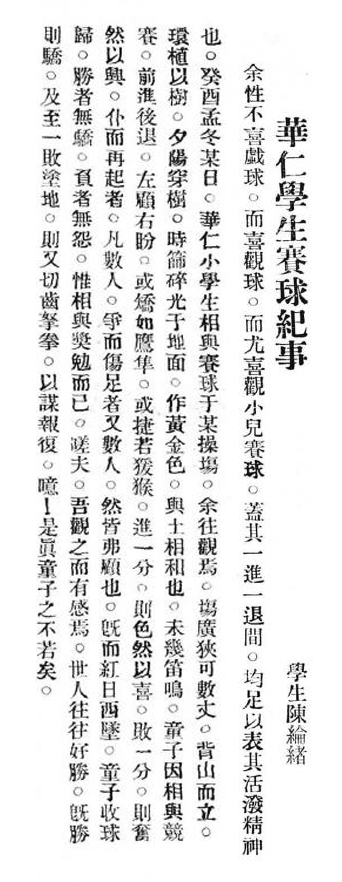 華仁學生賽球紀事
學生陳綸緒
余性不喜戲球。而喜觀球。而尤喜觀小兒賽球。蓋其一進一退間。均足以表其活潑精神
也。癸酉孟冬某日。華仁小學生相與賽球于某操塲。余往觀焉。塲廣狹可數丈。背山而立。
環植以樹。夕陽穿樹。時篩碎光于地面。作黃金色。與土相和也。未幾笛鳴。童子因相與競
賽。前進後退。左顧右盼。或矯如鷹隼。或捷若猨猴。進一分。則色然以喜。敗一分。則奮
然以興。仆而再起者。凡數人。爭而傷足者又數人。然皆弗顧也。旣而紅日西墜。童子收球
歸。勝者無驕。負者無怨。惟相與奬勉而已。嗟夫。吾觀之而有感焉。世人往往好勝。旣勝
則驕。及至一敗塗地。則又切齒拏拳。以謀報復。噫！是眞童子之不若矣。